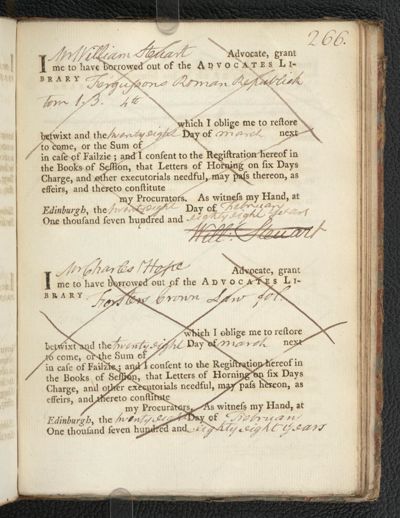 266.
I Mr William Steuart Advocate, grant
me to have borrowed out of the ADVOCATES LI-
BRARY Fergussons Roman Republick
tom 1. 3. 4to
which I oblige me to reſtore
betwixt and the twenty eight Day of march next
to come, or the Sum of
in caſe of Failzie; and I conſent to the Regiſtration hereof in
the Books of Seſſion, that Letters of Horning on ſix Days
Charge, and other executorials needful, may paſs hereon, as
effeirs, and thereto conſtitute
my Procurators. As witneſs my Hand, at
Edinburgh, the twenty eight Day of February
One thouſand ſeven hundred and eighty eight years
Will: Steuart
I Mr Charles Hope Advocate, grant
me to have borrowed out of the ADVOCATES LI-
BRARY Forsters Crown Law fol.
which I oblige me to reſtore
betwixt and the twenty eight Day of march next
to come, or the Sum of
in caſe of Failzie; and I conſent to the Regiſtration hereof in
the Books of Seſſion, that Letters of Horning on ſix Days
Charge, and other executorials needful, may paſs hereon, as
effeirs, and thereto conſtitute
my Procurators. As witneſs my Hand, at
Edinburgh, the twenty eight Day of February
One thouſand ſeven hundred and eighty eight years